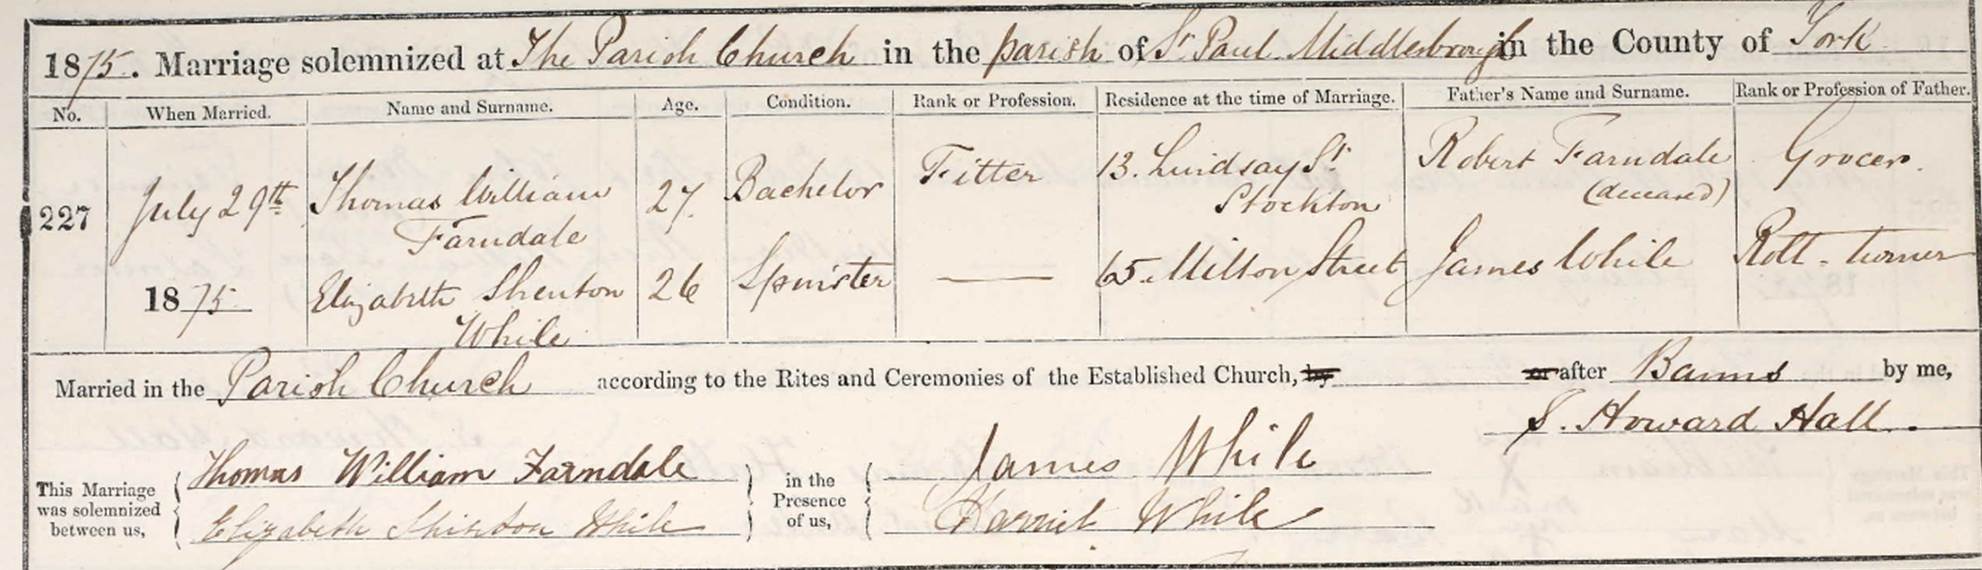 1875. Marriage solemnized at The Parish Church in the parish of St Paul Middlesbrough in the County of York
No. When Married. Name and Surname. Age. Condition. Rank or Profession. Residence at the time of Marriage. Father's Name and Surname. Rank or Profession of Father.
227 July 29th 1875 Thomas William Farndale 27 Bachelor Fitter 13. Lindsay St Stockton Robert Farndale (deceased) Grocer.
Elizabeth Shenton While 26 Spinster 65. Milton Street James While Roll-turner
Married in the Parish Church according to the Rites and Ceremonies of the Established Church, by or after Banns by me,
S. Howard Hall.
This Marriage was solemnized between us, Thomas William Farndale in the Presence of us, James While
Elizabeth Shenton While Harriet While